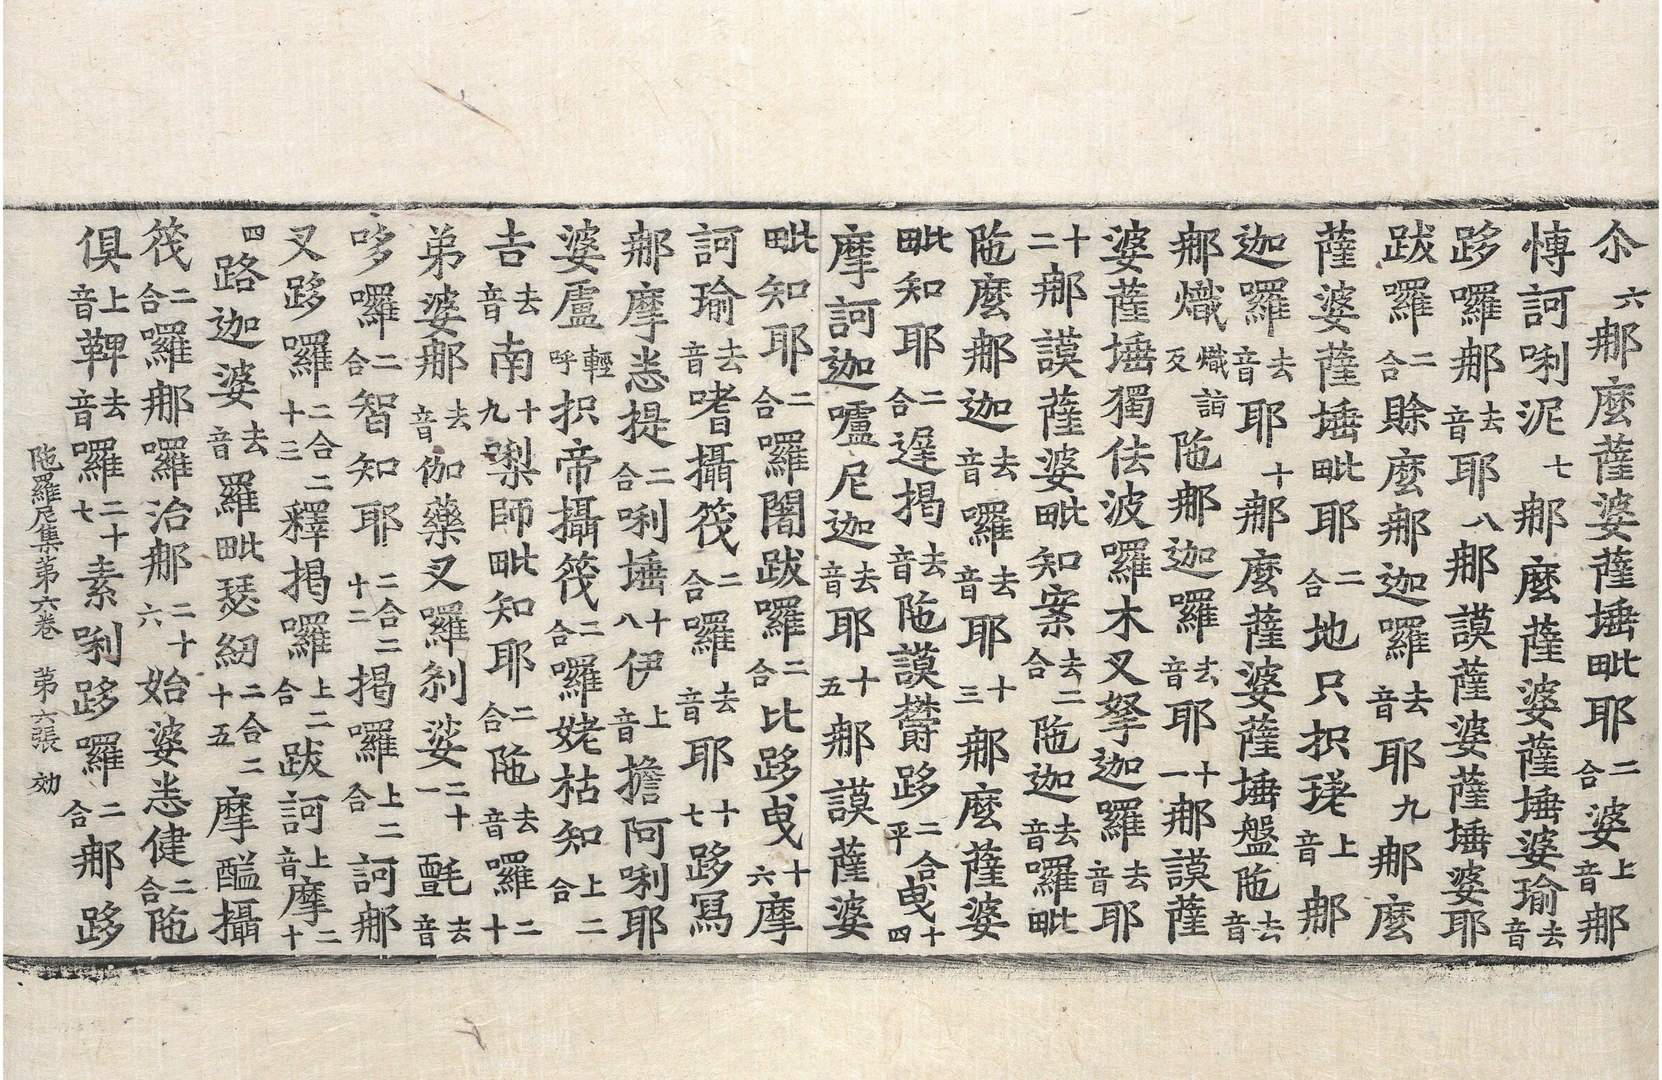 尒六那麼薩婆薩埵毗耶二合婆上音那
慱訶唎泥七那麼薩婆薩埵婆瑜去音
跢囉那去音耶八那謨薩婆薩埵婆耶
跋囉二合賒麼那迦囉去音耶九那麼
薩婆薩埵毗耶二合地只抧瑳上音那
迦囉去音耶十那麼薩婆薩埵盤陁去音
那熾熾詣反陁那迦囉去音耶十一那謨薩
婆薩埵獨佉波囉木叉拏迦囉去音耶
十二那謨薩婆毗知案去二合陁迦去音囉毗
陁麼那迦去音囉去音耶十三那麼薩婆
毗知耶二合遅揭去音陁謨欝跢二合平曳十四
摩訶迦嚧尼迦去音耶十五那謨薩婆
毗知耶二合囉闍跋囉二合比跢曳十六摩
訶瑜去音嗜攝筏二合囉去音耶十七跢寫
那摩悉提二合唎埵十八伊上音擔阿唎耶
婆盧輕呼抧帝攝筏二合囉姥枯知上二合
吉去音南十九㴝師毗知耶二合陁去音囉二十
弟婆那去音伽藥叉囉剎娑二十一氎去音
哆囉二合智知耶二合二十二揭囉上二合訶那
叉跢囉二合二十三釋揭囉上二合跋訶上音摩二十
四路迦婆去音羅毗瑟紉二合二十五摩醯攝
筏二合囉那囉治那二十六始婆悉健二合陁
俱上音鞞去音囉二十七素唎跢囉二合那跢
陁羅尼集苐六卷　第六張　効